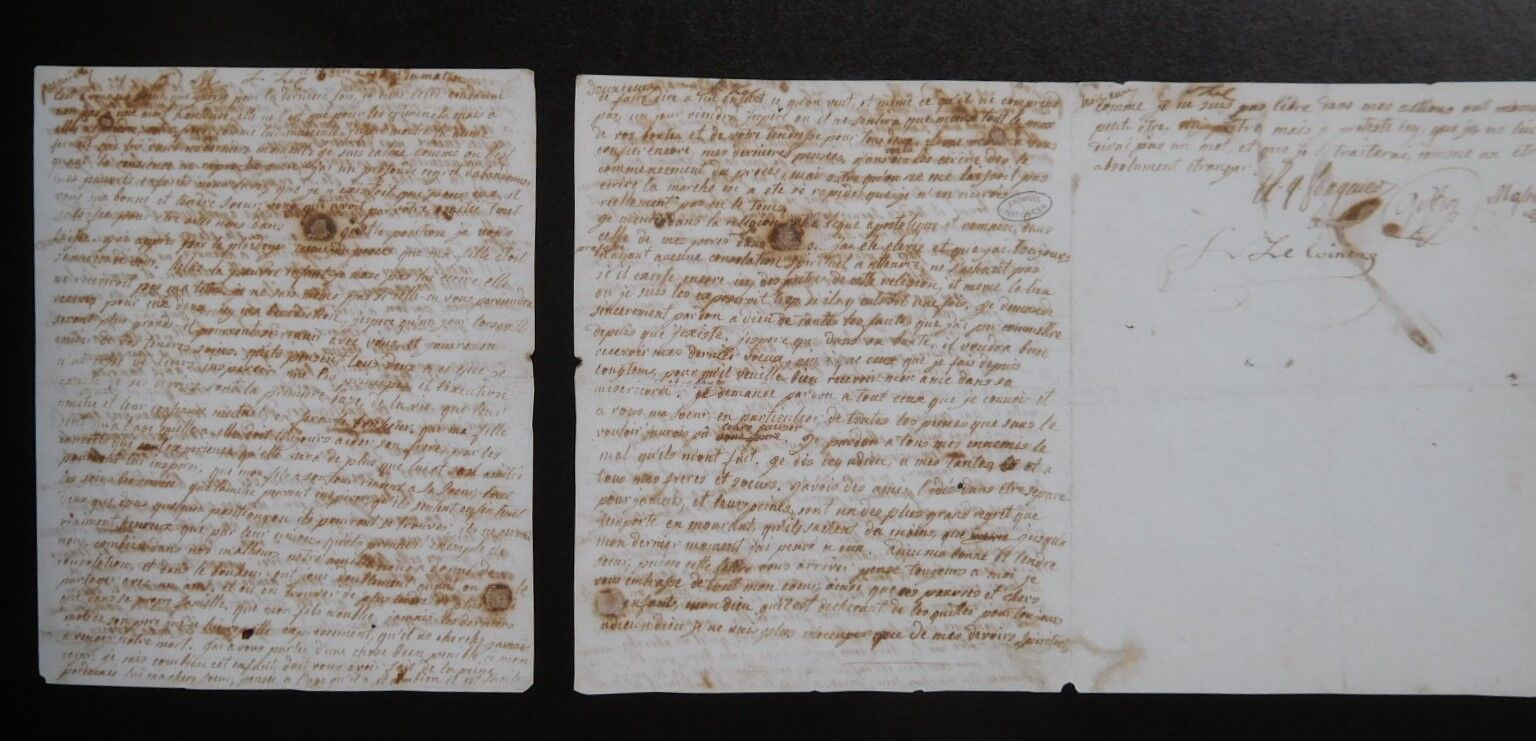 ce 8bre a 4 h ½ du matin
c'est a vous ma soeur que j'ecris pour la derniere fois, je viens d'etre condamnée
non pas a une mort honteuse, elle ne l'est que pour les criminels, mais a
votre frere, comme lui innocente, j'espere montrer la meme
fermeté que lui dans ces derniers moments. je suis calme comme on l'est
quand la conscience ne reproche rien, j'ai un profond regret d'abandonner
mes pauvres enfants, vous savez que je n'existois que pour eux, et
vous ma bonne et tendre soeur, vous qui avez par votre amitié tout
sacrifié pour etre avec nous dans quelle position je vous
laisse, j'ai appris par le plaidoyer meme du proces que ma fille etoit
separée de vous. helas la pauvre enfant je n'ose pas lui ecrire elle
ne recevroit pas ma lettre, je ne sais meme pas si celle cy vous parviendra
recevez pour eux deux icy ma benediction. j'espere qu'un jour lorsqu'ils
seront plus grands, ils pourront se reunir avec vous, et jouir en
entier de vos tendres soins, qu'ils pensent tous deux a ce que je
n'ai cessé de leurs inspirer, que les principes, et l'execution
exacte de ses devoirs sont la premiere base de la vie, que leur
amitié et leur confiance mutuel en fera le bonheur, que ma fille
sent qu'a l'age qu'elle a elle doit toujours aider son frere par les
conseils que l'experience qu'elle aura de plus que lui et son amitié
pourront lui inspirer, que mon fils a son tour rende a sa soeur, tous
les soins, les services que l'amitié peuvent inspirer, qu'ils sentent enfin tous
deux que dans quelque position ou ils pourront se trouver ils ne seront
vraiment heureux que par leur union, qu'ils prennent exemple de
nous, combien dans nos malheurs notre amitié nous a donné de
consolation, et dans le bonheur on jouit doublement quand on peut le
partager avec un ami, et ou en trouver de plus tendre de plus
que dans sa propre famille, que mon fils n'oublie jamais les derniers
mots de son pere que je lui repete expressement, qu'il ne cherche jamais
a venger notre mort. j'ai a vous parler d'une chose bien penible a mon
coeur, je sais combien cet enfant, doit vous avoir fait de la peine,
pardonnez lui ma chere soeur, pensez a l'age qu'il a, et combien il est facile
de faire dire a un enfant ce qu'on veut, et meme ce qu'il ne comprend
pas, un jour viendra j'espere ou il ne sentira que mieux tout le prix
de vos bontés et de votre tendresse pour tous deux. il me reste a vous
confier encore mes dernieres pensées, j'aurois voulu les ecrire des le
commencement du proces, mais outre qu'on ne me laissoit pas
ecrire la marche en a été si rapide que je n'en aurois
reellement pas eu le tems.
ARCHIVES NATIONALES
je meurs dans la religion catholique apostolique et romaine, dans
celle de mes peres, dans celle ou j'ai été elevée et que j'ai toujours
professée n'ayant aucune consolation spirituel a attendre, ne sachant pas
s'il existe encore icy des pretres de cette religion, et meme le lieu
ou je suis les exposeroit trop si ils y entroient une fois. je demande
sincerement pardon a dieu de toutes les fautes que j'ai pu commettre
depuis que j'existe. j'espere que dans sa bonté, il voudra bien
recevoir mes derniers voeux, ainsi que ceux que je fais depuis
longtems, pour qu'il veuille bien recevoir mon ame dans sa
misericorde. je demande pardon a tout ceux que je connois et
a vous ma soeur en particulier de toutes les peines que sans le
vouloir j'aurois pu vous causer. je pardonne a tous mes ennemis le
mal qu'ils m'ont fait. je dis icy adieu, a mes tantes et a
tous mes freres et soeurs. j'avois des amis, l'idée d'en etre separée
pour jamais, et leurs peines, sont un des plus grand regret que
j'emporte en mourant, qu'ils sachent du moins, que jusqu'a
mon dernier moment j'ai pensé a eux. adieu ma bonne et tendre
soeur; puisse cette lettre vous arriver pensez toujours a moi je
vous embrasse de tout mon coeur, ainsi que ces pauvres et chers
enfants, mon dieu, qu'il est dechirant de les quitter pour toujours
adieu adieu je ne vais plus m'occuper que de mes devoirs spirituel
comme je ne suis pas libre dans mes actions on m'amenera
peut etre, un pretre mais je proteste icy, que je ne lui
dirai pas un mot, et que je le traiterai comme un etre
absolument etranger.
A. Q. Fouquier
Guffroy
Mass
L. Le Cointre